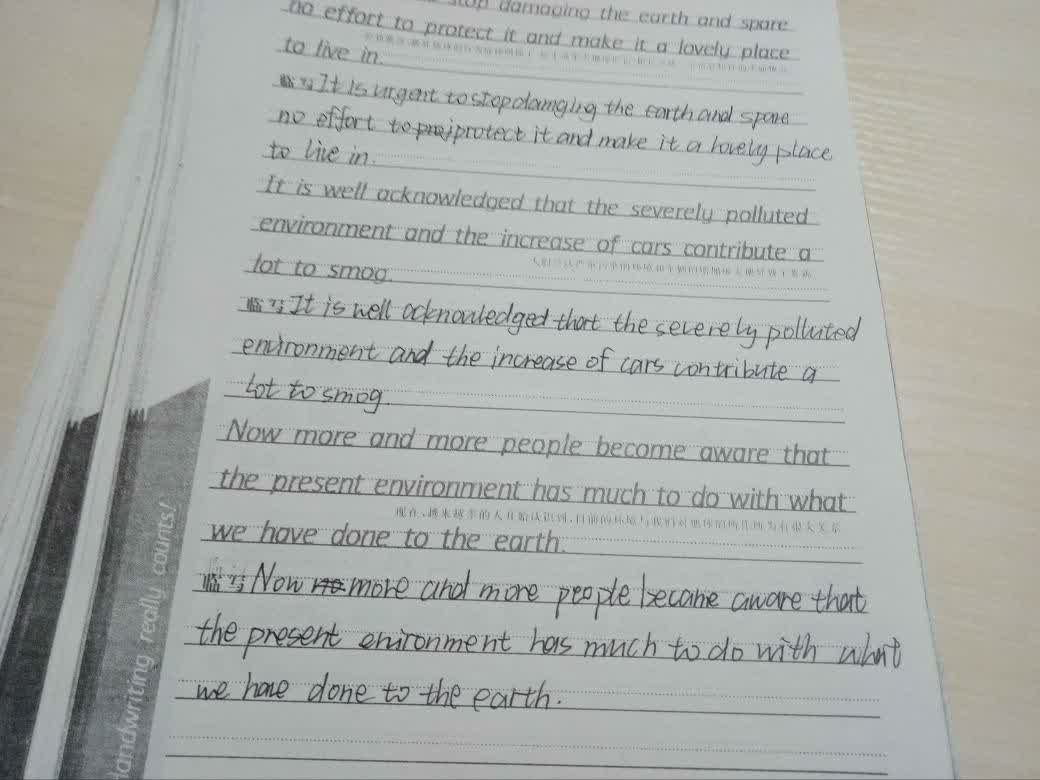 stop damaging the earth and spare
no effort to protect it and make it a lovely place
to live in.
临写 It is urgent to stop damging the earth and spare
no effort to protect it and make it a lovely place
to live in.
It is well acknowledged that the severely polluted
environment and the increase of cars contribute a
lot to smog.
临写 It is well acknowledged that the severely polluted
environment and the increase of cars contribute a
lot to smog.
Now more and more people become aware that
the present environment has much to do with what
现在,越来越多的人开始认识到,目前的环境与我们对地球的所作所为有很大关系
we have done to the earth.
临写 Now more and more people become aware that
the present enironment has much to do with what
we have done to the earth.
Handwriting really counts!